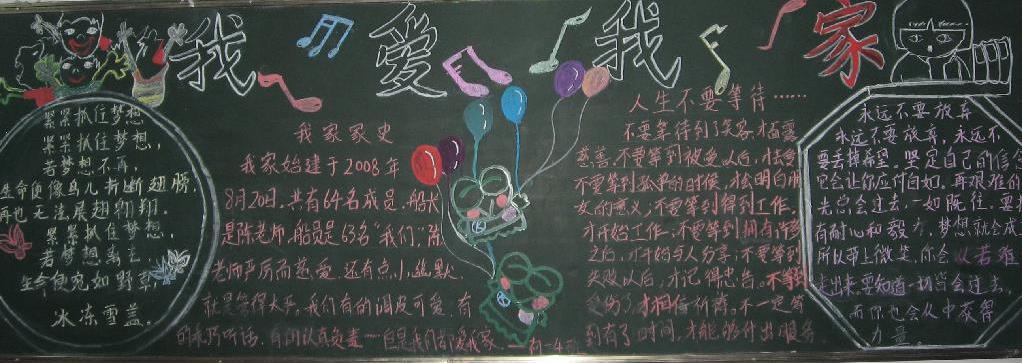 我爱我家
紧紧抓住梦想
紧紧抓住梦想,
若梦想不再,
生命便像鸟儿折断翅膀
再也无法展翅翱翔.
紧紧抓住梦想,
若梦想离去,
生命便宛如野草
冰冻雪盖.
我家家史
我家始建于2008年
8月20日.共有64名成员.船长
是陈老师,船员是63名“我们”,陈
老师严厉而慈爱.还有点小幽默
就是管得太严.我们有的调皮可爱.有
的乖巧听话.有的认真负责……但是我们都爱我家.
人生不要等待……
不要等待到了笑容,才面露
慈善,不要等到被爱以后,才去爱
不要等到孤单的时候,才会明白朋
友的意义,不要等到得到工作,
才开始工作,不要等到拥有许多
之后,才开始与人分享;不要等到
失败以后,才记得忠告。不要等
受伤了,才相信祈祷。不一定等
到有了时间,才能够付出服务
永远不要放弃
永远不要放弃,永远不
要丢掉希望,坚定自己的信念
它会让你应付自如.再艰难的
先总会过去,一如既往.更
有耐心和毅力,梦想就会成
所以带上微笑,你会从苦难
走出来.要知道一切皆会过去,
而你也会从中获得
力量。